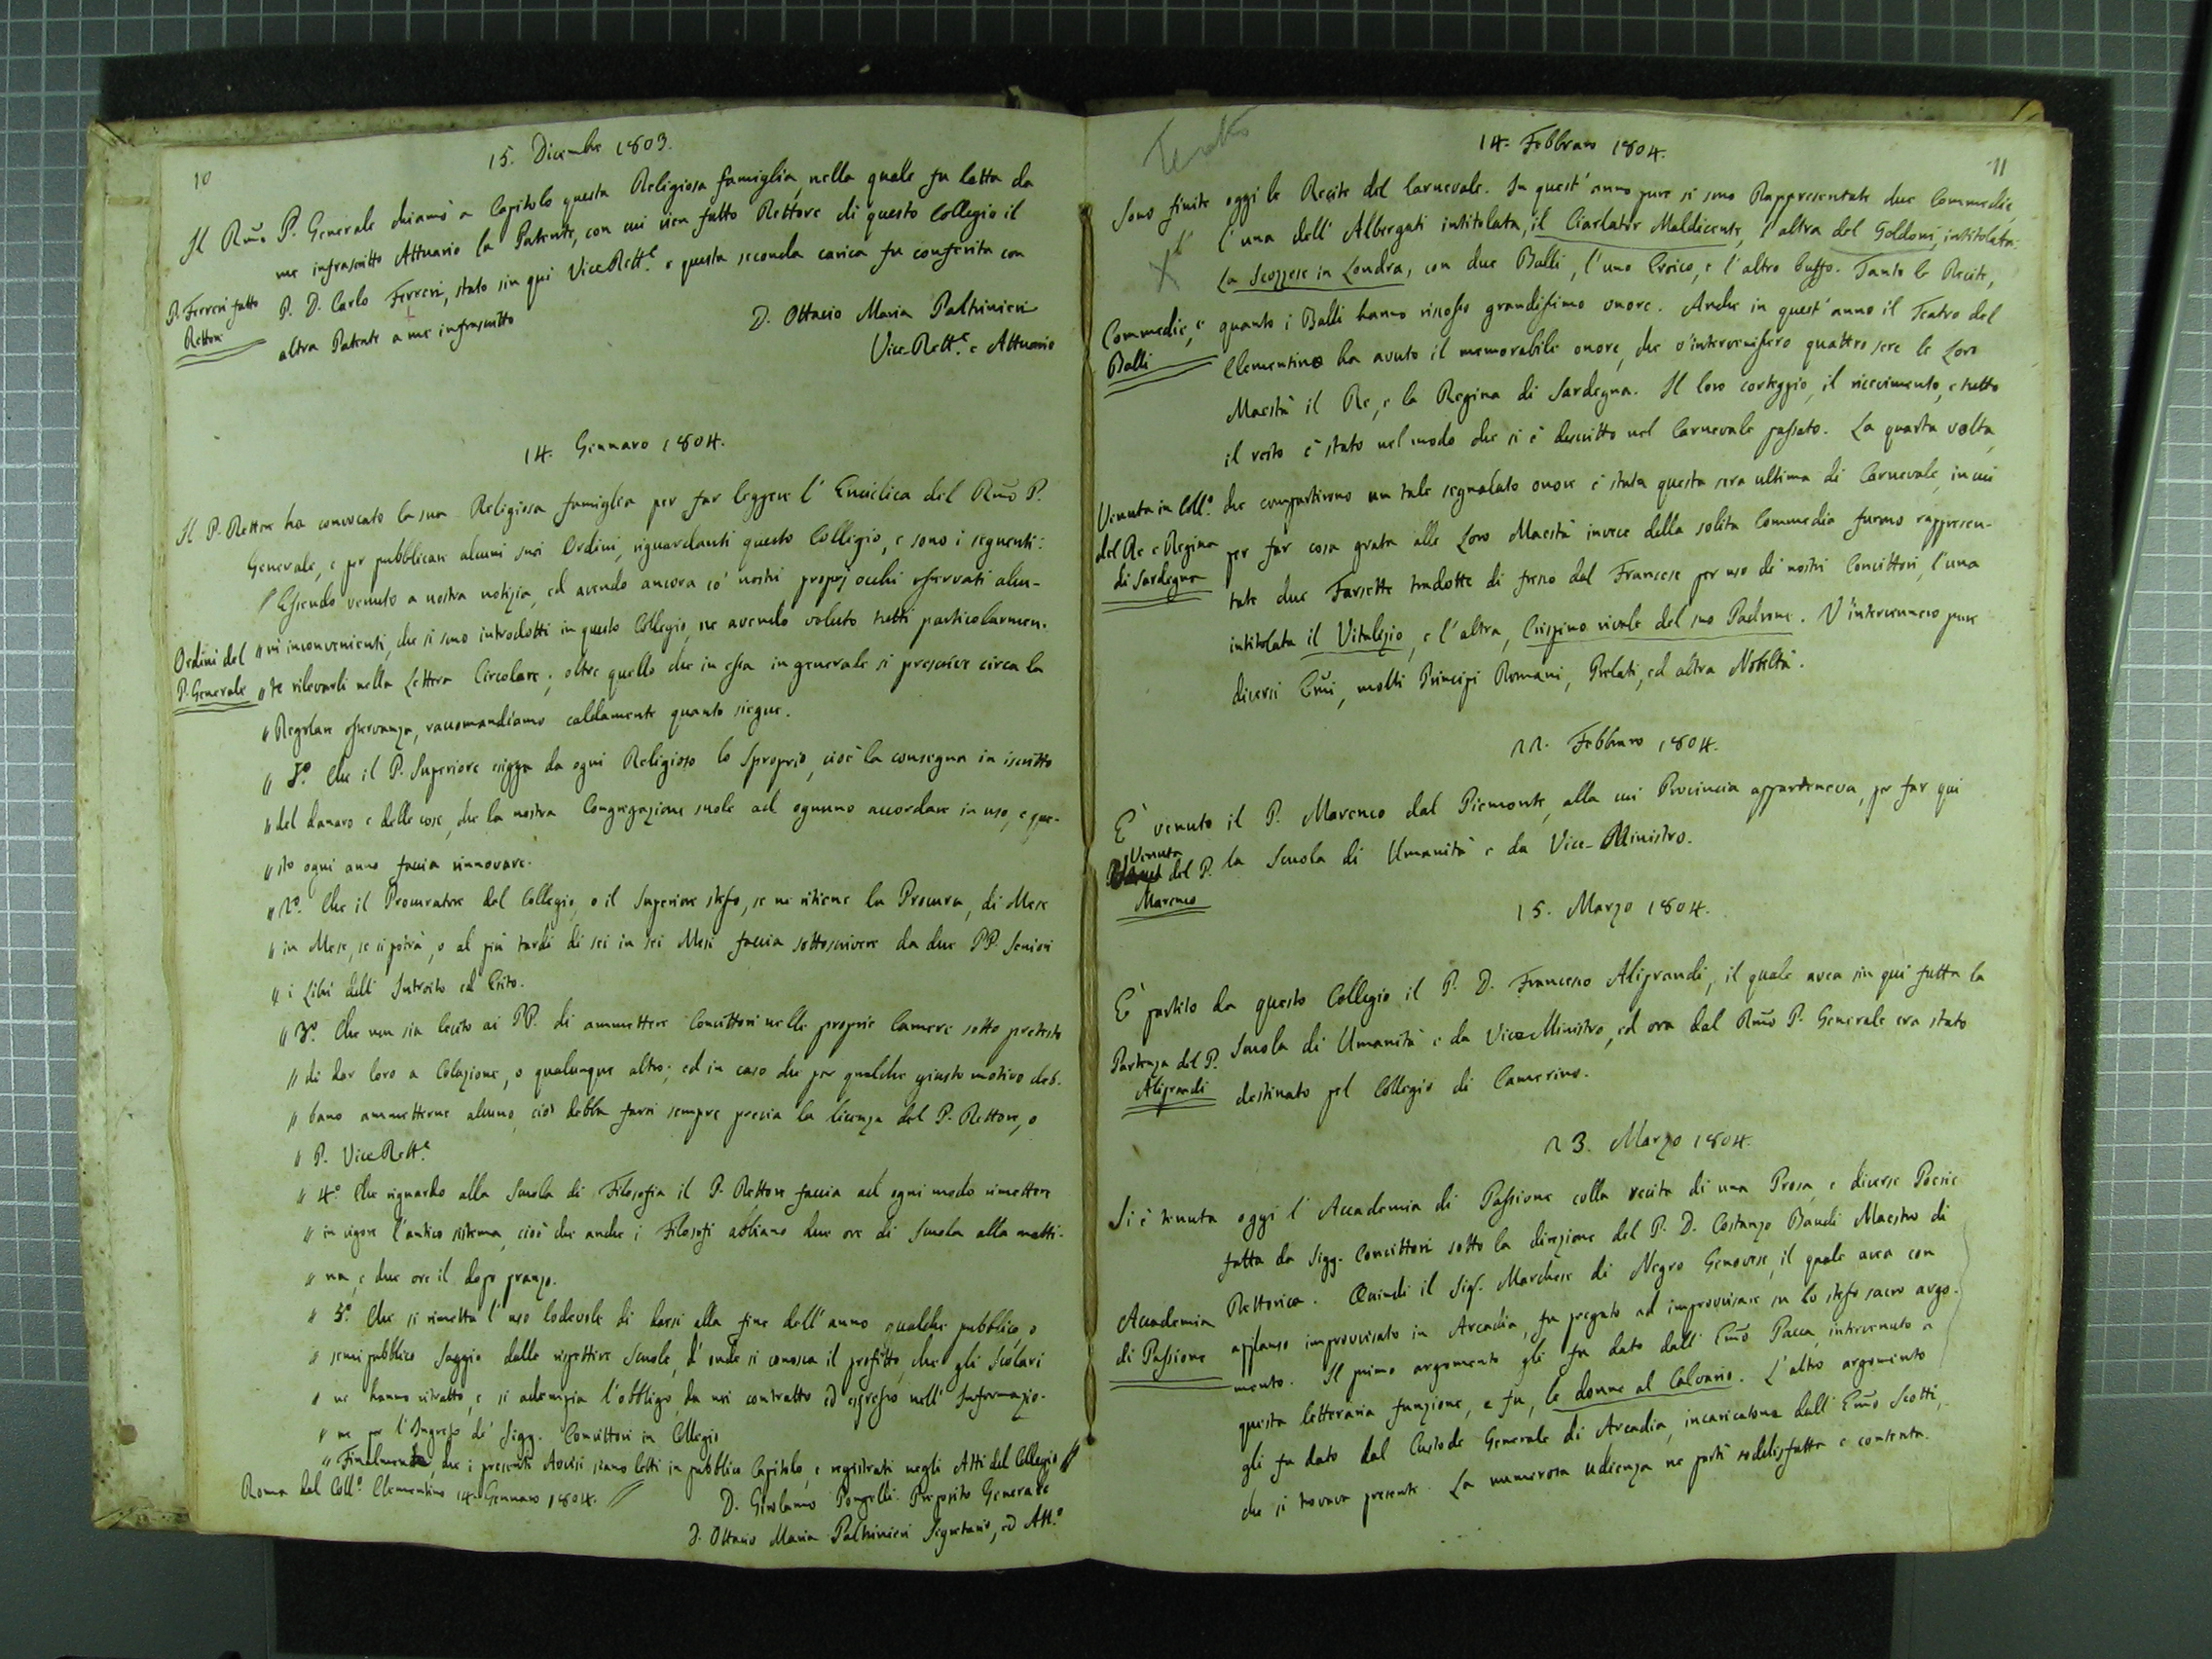 10
15. Dicembre 1803.
Il Rmo P. Generale chiamò a Capitolo questa Religiosa famiglia, nella quale fu letta da
me infrascritto Attuario la Patente, con cui vien fatto Rettore di questo Collegio il
P. Ferreri fatto
Rettore
P. D. Carlo Ferreri, stato sin qui Vice-Rett.e e questa seconda carica fu conferita con
altra Patente a me infrascritto
D. Ottavio Maria Paltrinieri
Vice-Rett.e e Attuario
14. Gennaro 1804.
Il P. Rettore ha convocato la sua Religiosa famiglia per far leggere l'Enciclica del Rmo P.
Generale, e per pubblicare alcuni suoi Ordini, riguardanti questo Collegio, e sono i seguenti:
" Essendo venuto a nostra notizia, ed avendo ancora co' nostri proprj occhi osservati alcu-
Ordini del
P. Generale
" ni inconvenienti, che si sono introdotti in questo Collegio, ne avendo voluto tutti particolarmen-
" te rilevarli nella Lettera Circolare; oltre quello che in essa in generale si prescrive circa la
" Regolare osservanza, raccomandiamo caldamente quanto siegue.
" 1.o Che il P. Superiore esigga da ogni Religioso lo Sproprio, cioè la consegna in iscritto
" del danaro e delle cose, che la nostra Congregazione suole ad ognuno accordare in uso, e que-
" sto ogni anno faccia rinnovare.
" 2.o Che il Procuratore del Collegio, o il Superiore stesso, se ne ritiene la Procura, di Mese
" in Mese, se si potrà, o al più tardi di sei in sei Mesi faccia sottoscrivere da due PP. Seniori
" i Libri dell'Introito ed Esito.
" 3.o Che non sia lecito ai PP. di ammettere Convittori nelle proprie Camere sotto pretesto
" di dar loro a Colazione, o qualunque altro; ed in caso che per qualche giusto motivo deb-
" bano ammetterne alcuno, ciò debba farsi sempre previa la licenza del P. Rettore, o
" P. Vice Rett.e
" 4.o Che riguardo alla Scuola di Filosofia il P. Rettore faccia ad ogni modo rimettere
" in vigore l'antico sistema, cioè che anche i Filosofi abbiano due ore di Scuola alla matti-
" na, e due ore il dopo pranzo.
" 5.o Che si rimetta l'uso lodevole di darsi alla fine dell'anno qualche pubblico, o
" semipubblico Saggio dalle rispettive Scuole, d'onde si conosca il profitto, che gli Scolari
" ne hanno ritratto, e si adempia l'obbligo, da noi contratto ed espresso nell'Informazio-
" ne per l'Ingresso de' Sigg. Convittori in Collegio
" Finalmente, che i presenti Avvisi siano letti in pubblico Capitolo, e registrati negli Atti del Collegio "
Roma dal Coll.o Clementino 14. Gennaro 1804. "
D. Girolamo Pongelli. Preposito Generale
D. Ottavio Maria Paltrinieri Segretario, ed Att.o
11
14. Febbraro 1804.
Sono finite oggi le Recite del Carnevale. In quest'anno pure si sono Rappresentate due Commedie,
l'una dell'Albergati intitolata, il Ciarlator Maldicente, l'altra del Goldoni, intitolata:
La Scozzese in Londra, con due Balli, l'uno Eroico, e l'altro buffo. Tanto le Recite,
Commedie, e
Balli
quanto i Balli hanno riscosso grandissimo onore. Anche in quest'anno il Teatro del
Clementino ha avuto il memorabile onore, che v'intervenissero quattro sere le Loro
Maestà il Re, e la Regina di Sardegna. Il loro corteggio, il ricevimento, e tutto
il resto è stato nel modo che si è descritto nel Carnevale passato. La quarta volta,
Venuta in Coll.o
del Re e Regina
di Sardegna
che compartirono un tale segnalato onore è stata questa sera ultima di Carnevale, in cui
per far cosa grata alle Loro Maestà invece della solita Commedia furono rappresen-
tate due Farsette tradotte di fresco dal Francese per uso de' nostri Convittori, l'una
intitolata il Vitalizio, e l'altra, Crispino rivale del suo Padrone. V'intervennero pure
diversi Emi, molti Principi Romani, Prelati, ed altra Nobiltà.
22. Febbraro 1804.
E' venuto il P. Marenco dal Piemonte, alla cui Provincia apparteneva, per far qui
Venuta
del P.
Marenco
la Scuola di Umanità e da Vice-Ministro.
15. Marzo 1804.
E' partito da questo Collegio il P. D. Francesco Aliprandi, il quale avea sin qui fatta la
Partenza del P.
Aliprandi
Scuola di Umanità e da Vice-Ministro, ed ora dal Rmo P. Generale era stato
destinato pel Collegio di Camerino.
23. Marzo 1804.
Si è tenuta oggi l'Accademia di Passione colla recita di una Prosa, e diverse Poesie
fatta da Sigg. Convittori sotto la direzione del P. D. Costanzo Baudi Maestro di
Accademia
di Passione
Rettorica. Quindi il Sig. Marchese di Negro Genovese, il quale avea con
applauso improvvisato in Arcadia, fu pregato ad improvvisare su lo stesso sacro argo-
mento. Il primo argomento gli fu dato dall'Emo Pacca, intervenuto a
questa letteraria funzione, e fu, le donne al Calvario. L'altro argomento
gli fu dato dal Custode Generale di Arcadia, incaricatone dall'Emo Scotti,
che si trovava presente. La numerosa udienza ne partì sodelisfatta e contenta.